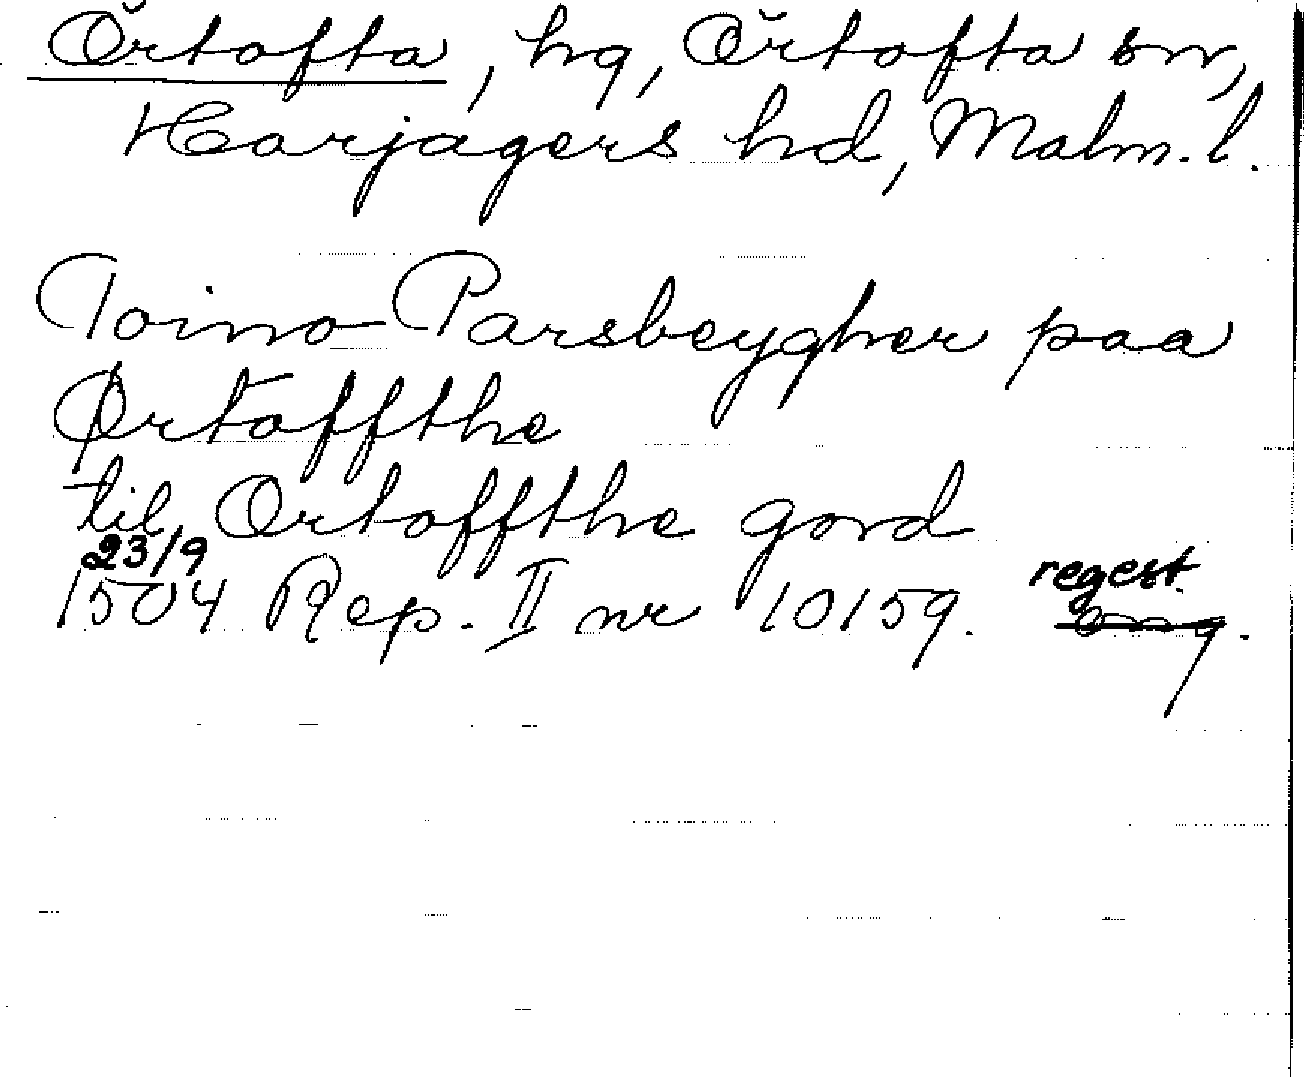 Örtofta, hg, Örtofta sn,
Harjagers hd, Malm. l.
Toino Parsbeygher paa
Ørtoffthe
til Ortoffthe gord
23/9
1504 Rep. II nr 10159. regest.